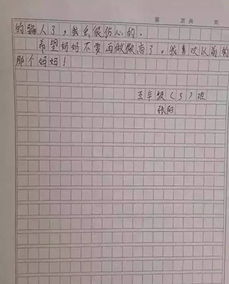 第 页共 页
的骗人了，我也很伤心的．
希望妈妈不要再做微商了，我喜欢以前的
那个妈妈！
五年级（5）班